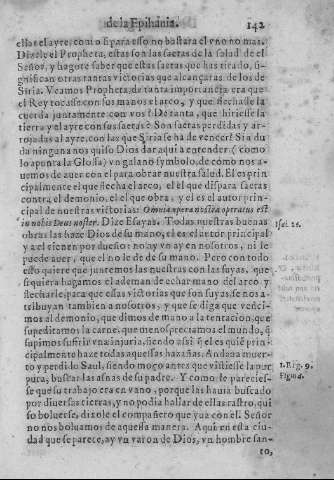 de la Epiphania. 142
ellas el ayre, como si para esso no bastara el vno no mas.
Dizele el Propheta, estas son las saetas de la salud de el
Señor, y hagote saber que estas saetas que has tirado, si-
gnifican otras tantas victorias que alcançaras de los de
Siria. Veamos Propheta, de tanta importancia era que
el Rey tocasse con sus manos el arco, y que flechasse la
cuerda juntamente con vos? De tanta, que hiriesse la
tierra y el ayre con sus saetas? Son saetas perdidas y arro-
jadas al ayre, con las que Siria se ha de vencer? Sin du
da ninguna nos quiso Dios dar aqui a entender (como
lo apunta la Glossa) vn galano symbolo, de cómo nos a-
uemos de auer con el para obrar nuestra salud. El es prin
cipalmente el que flecha el arco, el el que dispara saetas
contra el demonio, el el que obra, y el es el autor prin-
cipal de nuestras victorias: Omnia opera nostra operatus est
in nobis Deus noster. Dize Esayas. Todas nuestras buenas
Isai. 26.
obras las haze Dios de su mano, el es el autor principal
y a el tienen por dueño: no ay vn ay en nosotros, ni le
puede auer, que el no le de de su mano. Pero con todo
esso quiere que juntemos las nuestras con las suyas, que
si quiera hagamos el ademan de echar mano del arco y
flecharle, para que ellas victorias que son suyas, se nos a-
tribuyan tambien a nosotros, y que se diga que venci-
mos al demonio, que dimos de mano a la tentacion, que
supeditamos la carne, que menospreciamos el mundo, q̃
supimos sufrir vna injuria, siendo assi q̃ el es quiẽ prin-
cipalmente haze todas aquessas hazañas. Andaua muer-
to y perdido Saul, siendo moço antes que vistiesse la pur
1. Reg. 9.
pura, buscar las asnas de su padre. Y como le parecies-
Figura.
se que su trabajo era en vano, porque las hauia buscado
por diuersas tierras, y no podia hallar de ellas rastro, qui
so boluerse, dixole el compañero que yua con el. Señor
no nos boluamos de aquessa manera. Aqui en esta ciu-
dad que se parece, ay vn varon de Dios, vn hombre san-
to,